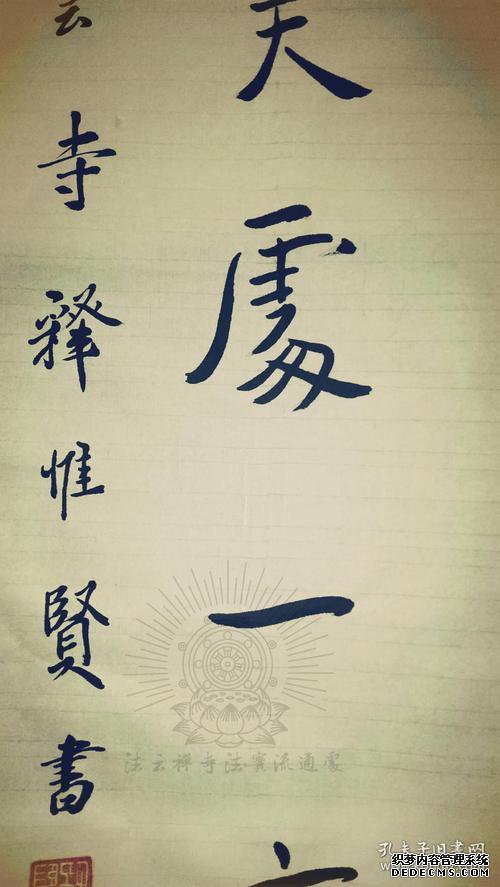 天處一
云寺释惟賢書
法云禪寺法寶流通處
孔夫子旧书网
织梦内容管理系统
DEDECMS.COM